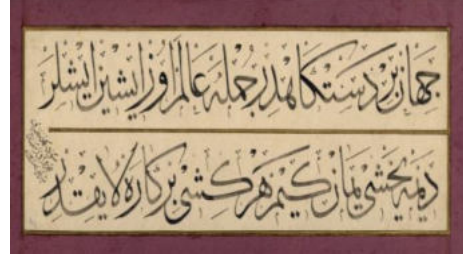 جهان بر دستكاهدر جمله عالم اوز ايشين ايشلر
ديمه يخشى يمان كيم هر كشى بر كاره لايقدر